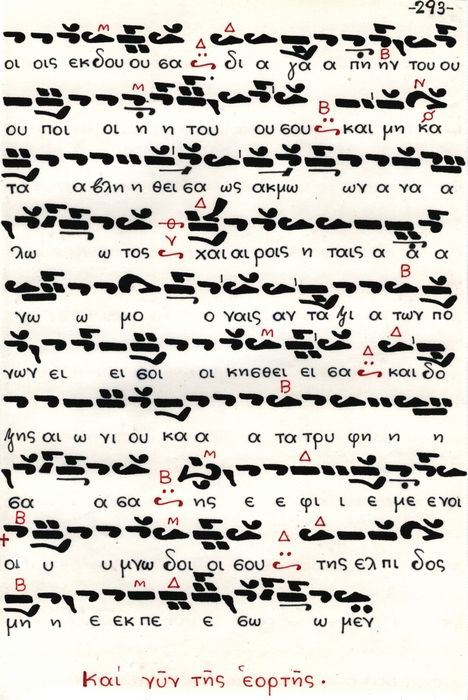 -293-
οι οις εκδου ου σα δι α γα α πη ην του ου
ου ποι οι η η του ου σου και μη κα
τα α βλη η θει σα ως ακμω ων α να α
λω ω τος χαι αι ροις η ταις α α α
νω ω μο ο ναις αν τα ξι α των πο
νων ει ει σοι οι κησθει ει σα και δο
ξης αι ω νι ου κα α α τα τρυ φη η η
σα α σα ης ε ε φι ι ε με ενοι
οι υ υ μνω δοι οι σου της ελ πι δος
μη η ε εκ πε ε σω ω μεν
Και νῦν τῆς ἑορτῆς.